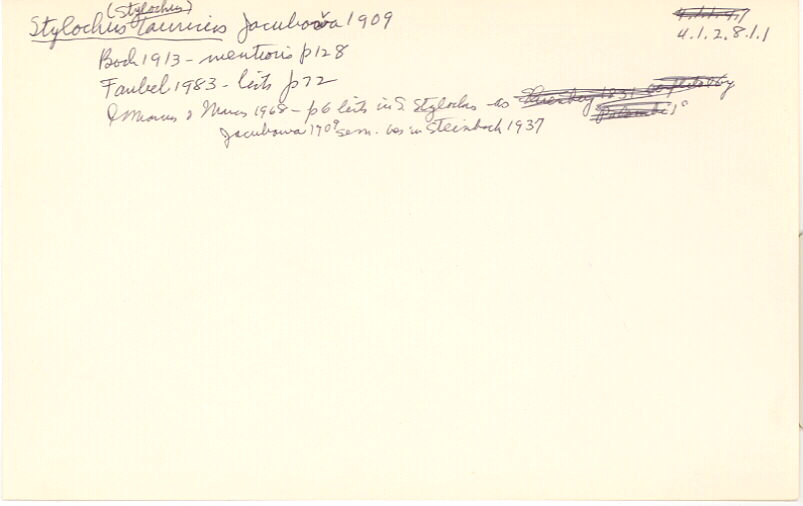 (Stylochus)
Stylochus tauricus Jacubowa 1909
4.1.2.8.1.1
Bock 1913 - mentions p128
Faubel 1983 - lists p72
Marcus & Marcus 1968 - p6 lists in S. Stylochus - as
Jacubowa 1909 sem. in Steinbock 1937